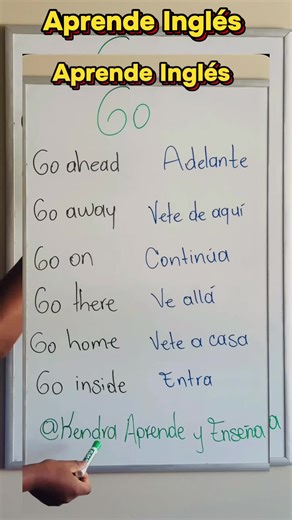 Aprende Inglés
Aprende Inglés
Go
Go ahead Adelante
Go away Vete de aquí
Go on Continúa
Go there Ve allá
Go home Vete a casa
Go inside Entra
@Kendra Aprende y Enseña